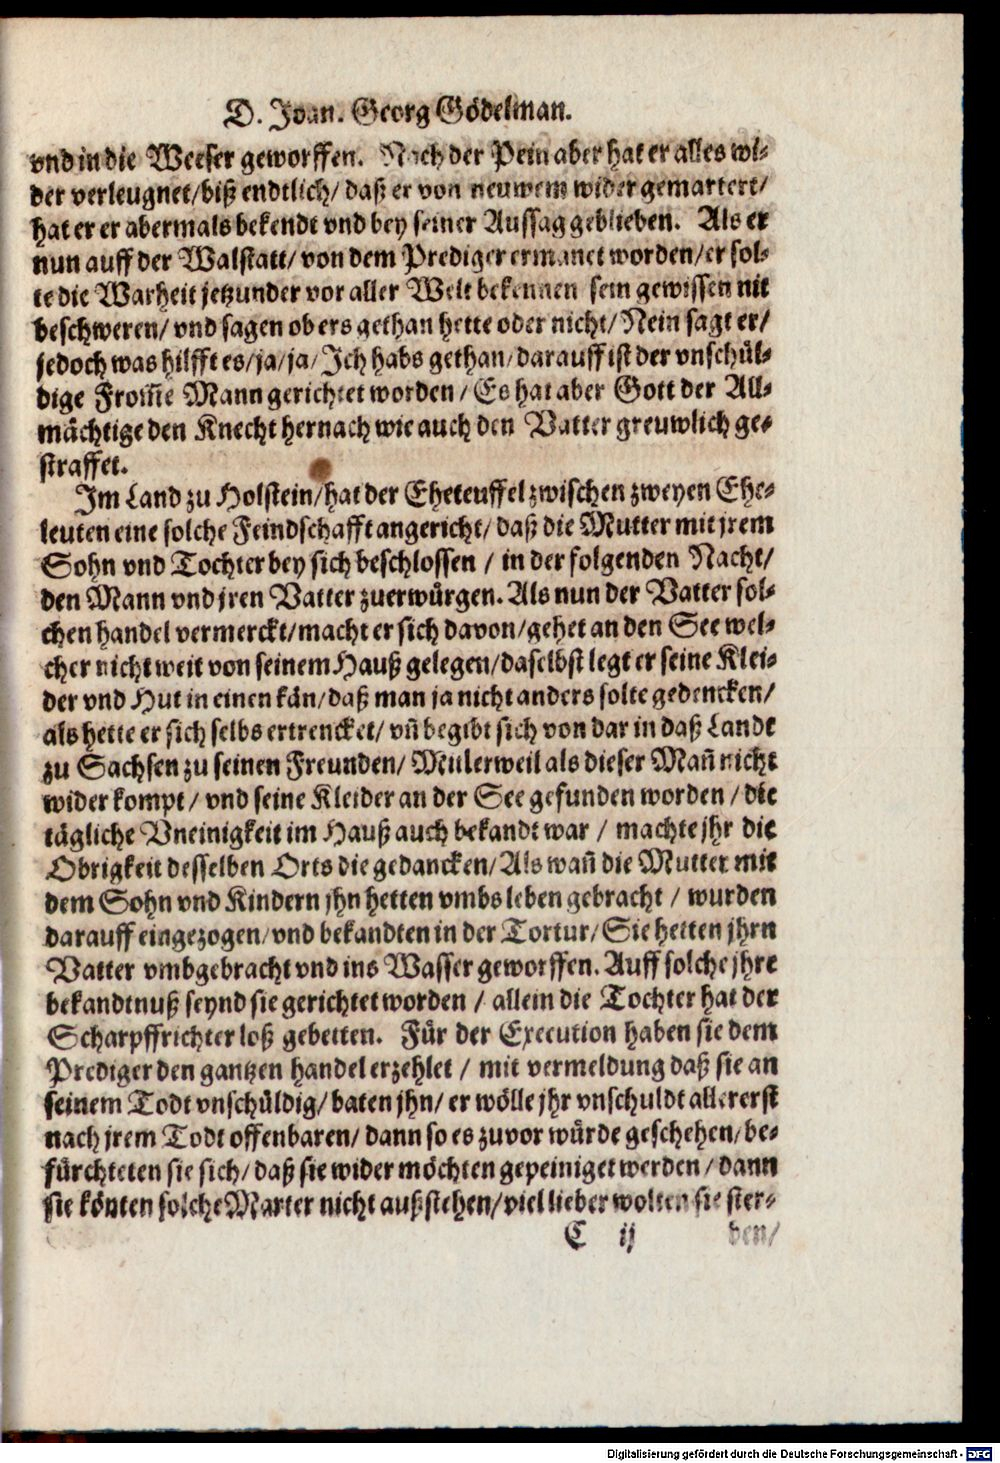 D. Joan. Georg Gödelman.
vnd in die Weeser geworffen. Nach der Pein aber hat er alles wi-
der verleugnet/ biß endtlich/ daß er von neuwem wider gemartert/
hat er er abermals bekendt vnd bey seiner Aussag geblieben. Als er
nun auff der Walstatt/ von dem Prediger ermanet worden/ er sol-
te die Warheit jetzunder vor aller Welt bekennen sein gewissen nit
beschweren/ vnd sagen ob ers gethan hette oder nicht/ Nein sagt er/
jedoch was hilfft es/ ja/ ja/ Ich habs gethan/ darauff ist der vnschül-
dige From̃e Mann gerichtet worden/ Es hat aber Gott der All-
mächtige den Knecht hernach wie auch den Vatter greuwlich ge-
straffet.
Im Land zu Holstein/ hat der Eheteuffel zwischen zweyen Ehe-
leuten eine solche Feindschafft angericht/ daß die Mutter mit jrem
Sohn vnd Tochter bey sich beschlossen / in der folgenden Nacht/
den Mann vnd jren Vatter zuerwürgen. Als nun der Vatter sol-
chen handel vermerckt/ macht er sich davon/ gehet an den See wel-
cher nicht weit von seinem Hauß gelegen/ daselbst legt er seine Klei-
der vnd Hut in einen kän/ daß man ja nicht anders solte gedencken/
als hette er sich selbs ertrencket/ vñ begibt sich von dar in daß Landt
zu Sachsen zu seinen Freunden/ Mitlerweil als dieser Mañ nicht
wider kompt / vnd seine Kleider an der See gefunden worden / die
tägliche Vneinigkeit im Hauß auch bekandt war / machte jhr die
Obrigkeit desselben Orts die gedancken/ Als wañ die Mutter mit
dem Sohn vnd Kindern jhn hetten vmbs leben gebracht / wurden
darauff eingezogen/ vnd bekandten in der Tortur/ Sie hetten jhrn
Vatter vmbgebracht vnd ins Wasser geworffen. Auff solche jhre
bekandtnuß seynd sie gerichtet worden / allein die Tochter hat der
Scharpffrichter loß gebetten. Für der Execution haben sie dem
Prediger den gantzen handel erzehlet / mit vermeldung daß sie an
seinem Todt vnschüldig/ baten jhn/ er wölle jhr vnschuldt allererst
nach jrem Todt offenbaren/ dann so es zuvor würde geschehen/ be-
fürchteten sie sich/ daß sie wider möchten gepeiniget werden/ dann
sie könten solche Marter nicht außstehen/ viel lieber wolten sie ster-
C ij den/
Digitalisierung gefördert durch die Deutsche Forschungsgemeinschaft - DFG